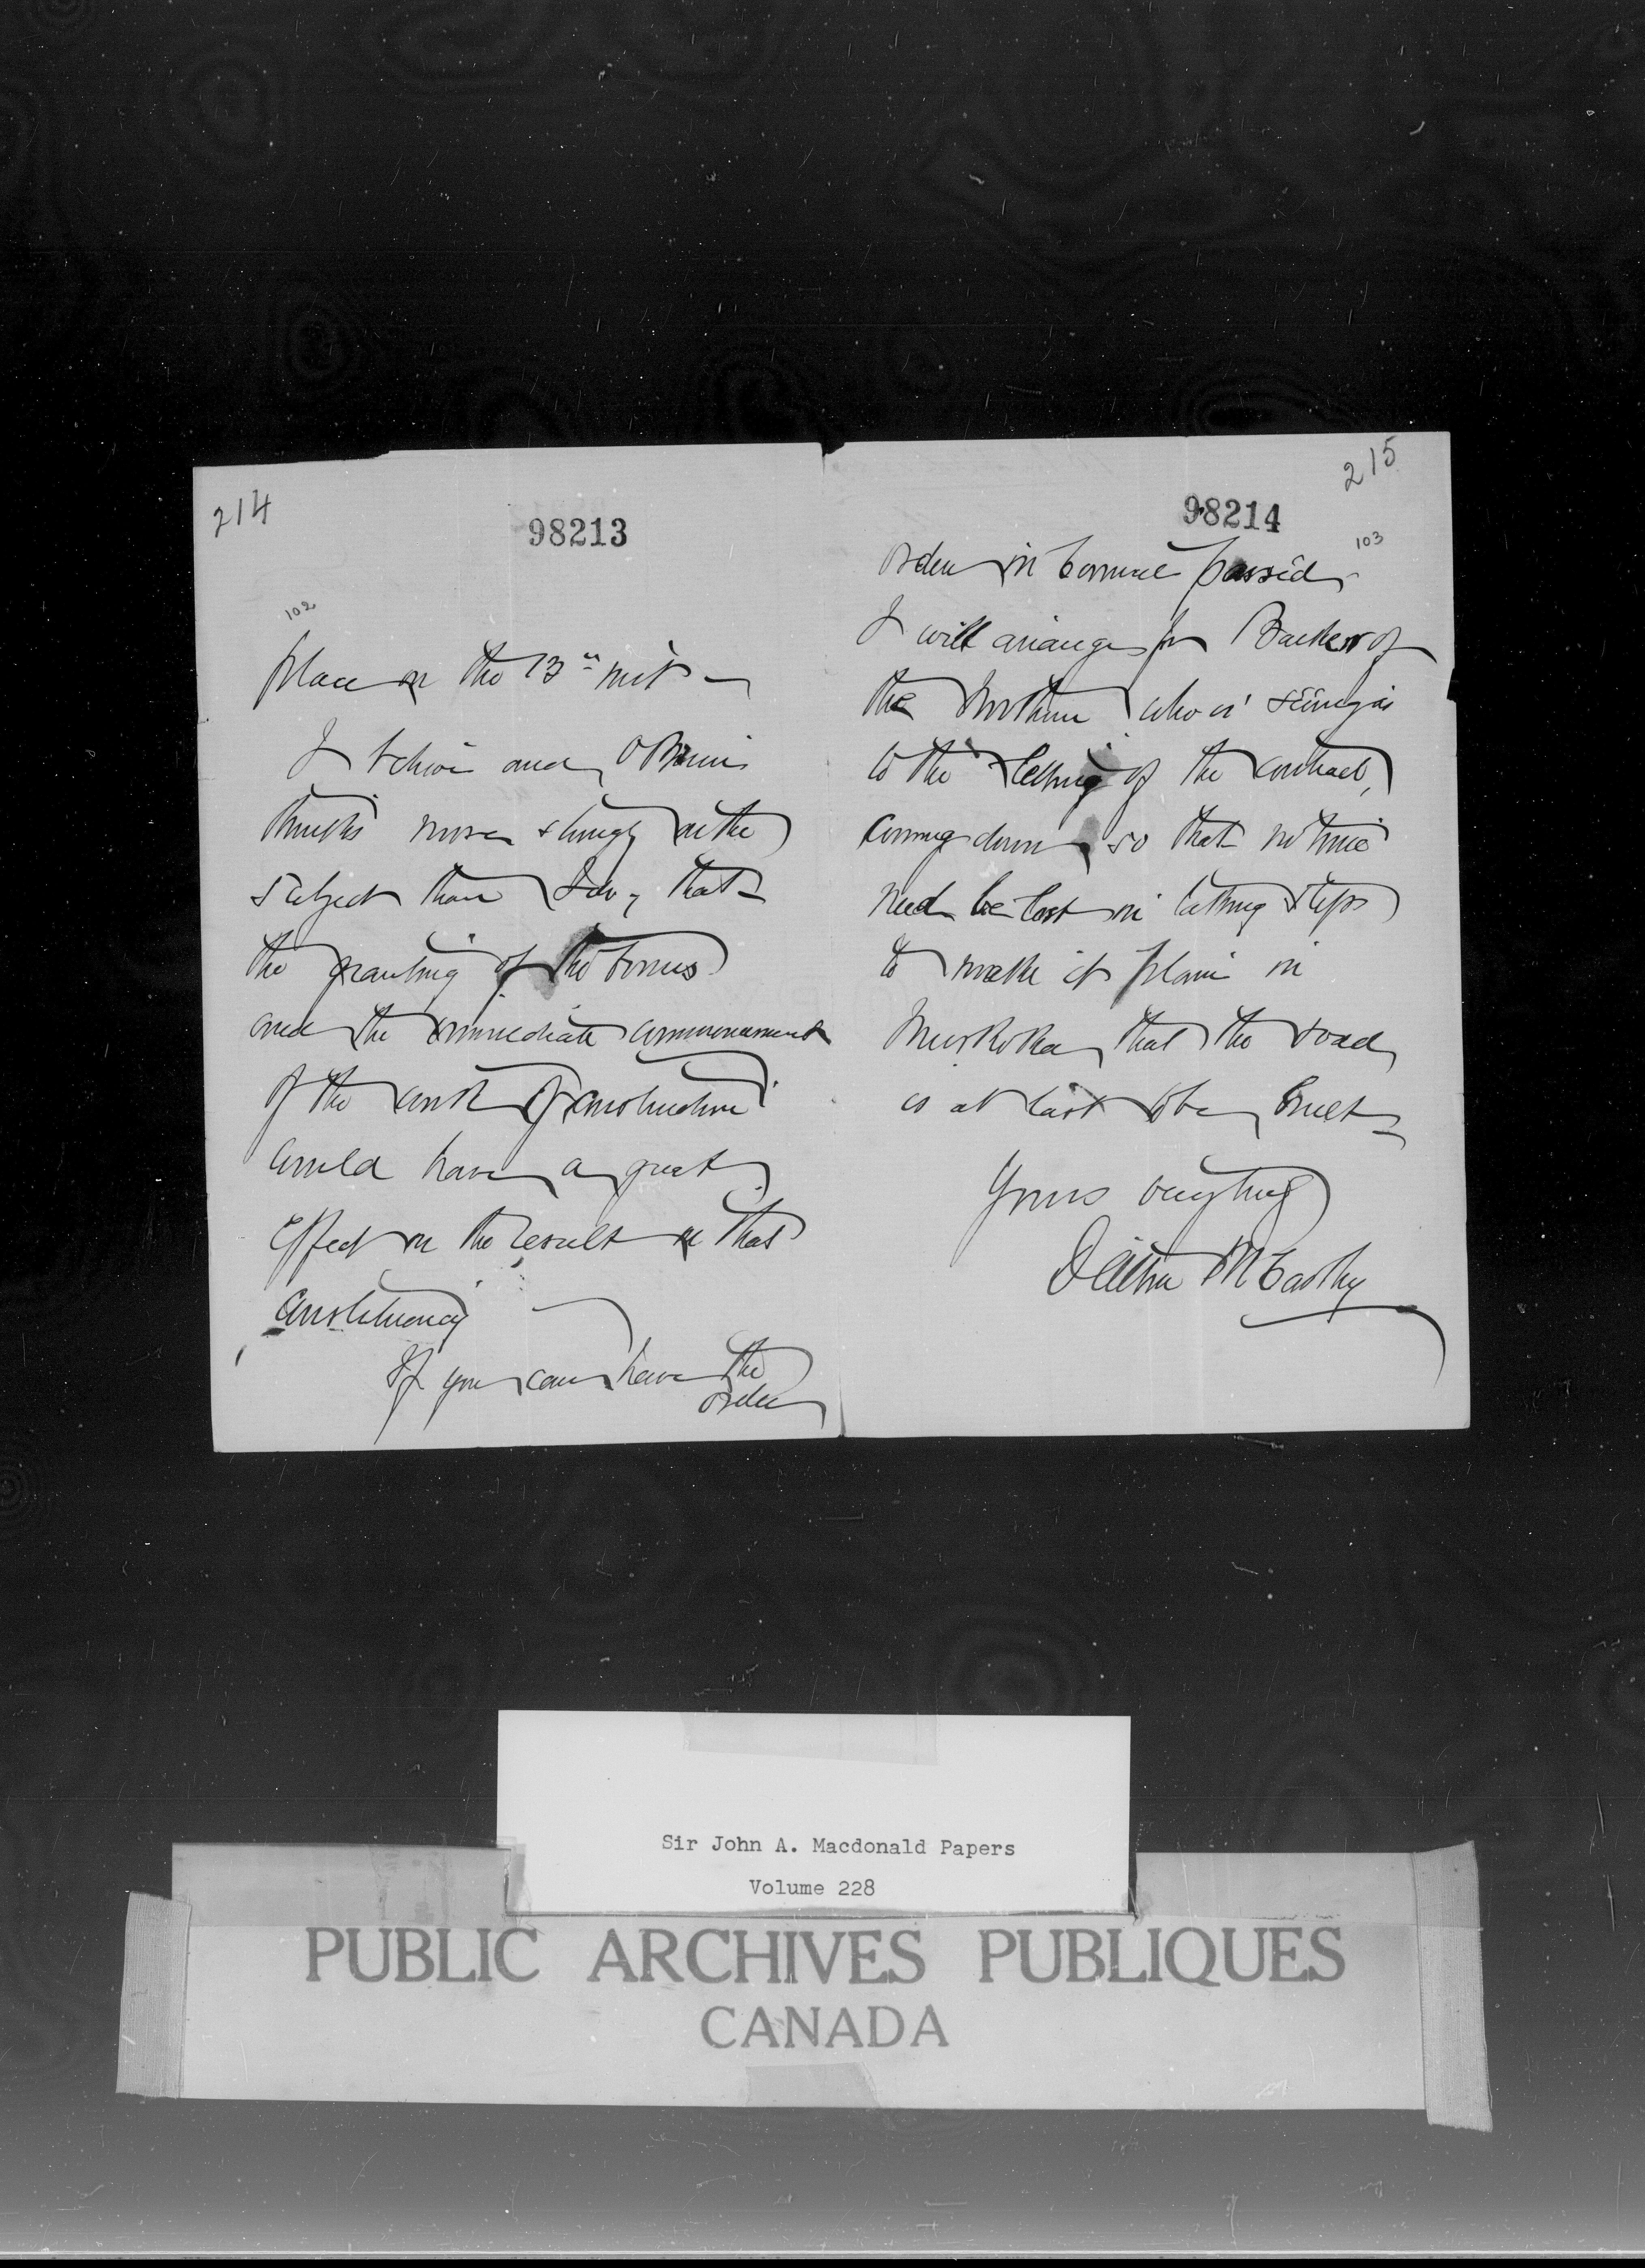 214
98213
102
place on the 13th inst -
I believe and, O'Brien
thinks more strongly on the
subject than I do, that
the granting of the bonus
and the immediate commencement
of the work of construction
would have a great
effect on the result in that
constituency
If you can have the
order
215
98214
103
order in Council passed,
I will arrange for Barker of
the Northern who is seeing as
to the letting of the contract,
coming down so that no time
need be lost in taking steps
to make it plain in
Muskoka, that the road
is at last to be, built
Yours very truly
Dalton McCarthy
Sir John A. Macdonald Papers
Volume 228
PUBLIC ARCHIVES PUBLIQUES
CANADA